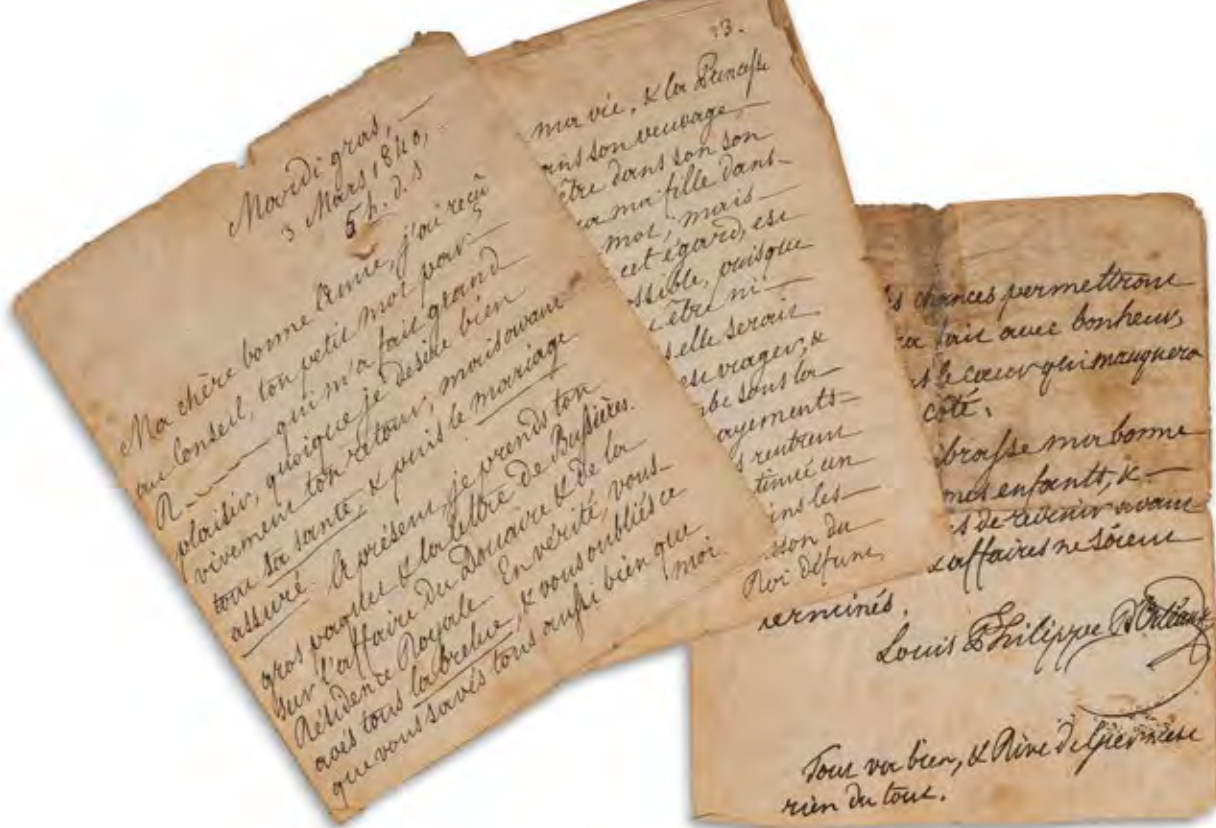 Mardi gras, —
3 Mars 1840, —
5 h. d. s
Ma chère bonne Amie, j'ai reçû
au Conseil, ton petit mot par
R---- qui m'a fait grand
plaisir, quoique je désire bien
vivement ton retour, mais avant
tout ta santé, & puis le mariage
assuré. A présent, je prends ton
gros paquet & la lettre de Bussières.
sur l'affaire du Douaire & de la
Résidence Royale. En vérité, vous
avés tous la berlue, & vous oubliés ce
que vous savés tous aussi bien que
moi.
3.
ma vie, & la Princesse
ans son veuvage, —
être dans son son
ma fille dans
mot; mais
cet égard, est
ossible, puisque
être ni
elle serait
viager, &
be sous la
ayements
rentrent
tinué un
ins les
son du
Roi défunt,
chances permettront
fait avec bonheur,
le cœur qui manquera
côté.
brasse ma bonne
mes enfants, &
de revenir avant
affaires ne soient
terminés.
Louis Philippe D'Orléans
Tout va bien, &
rien du tout.